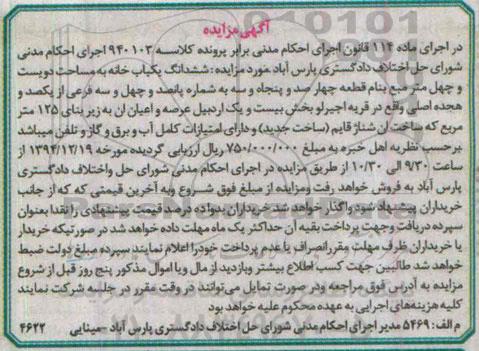 آگهی مزایده
در اجرای ماده ۱۱۴ قانون اجرای احکام مدنی برابر پرونده کلاسه ۹۴۰۱۰۳ اجرای احکام مدنی
شورای حل اختلاف دادگستری پارس آباد مورد مزایده : ششدانگ یکباب خانه به مساحت دویست
و چهل متر مربع بنام قطعه چهارصد و پنجاه و سه به شماره پانصد و چهل و سه فرعی از یکصد و
هجده اصلی واقع در قریه اجیرلو بخش بیست و یک اردبیل عرصه و اعیان ان به زیر بنای ۱۲۵ متر
مربع که ساخت ان شناژ قایم (ساخت جدید) و دارای امتیازات کامل آب و برق و گاز و تلفن میباشد
برحسب نظریه اهل خبره به مبلغ ۷۵۰/۰۰۰/۰۰۰ ریال ارزیابی گردیده مورخه ۱۳۹۴/۱۲/۱۹ از
ساعت ۹/۳۰ الی ۱۰/۳۰ از طریق مزایده در اجرای احکام مدنی شورای حل واختلاف دادگستری
پارس آباد به فروش خواهد رفت ومزایده از مبلغ فوق شروع وبه آخرین قیمتی که که از جانب
خریداران پیشنهاد شود واگذار خواهد شد خریداران بدواده درصد قیمت پیشنهادی را نقدا بعنوان
سپرده دریافت وجهت پرداخت بقیه آن حداکثر یک ماه مهلت داده خواهد شد در صورتیکه خریدار
یا خریداران ظرف مهلت مقرر انصراف یا عدم پرداخت خود را اعلام نمایند سپرده مبلغ دولت ضبط
خواهد شد طالبین جهت کسب اطلاع بیشتر وبازدید از مال ویا اموال مذکور پنج روز قبل از شروع
مزایده به آدرس فوق مراجعه ودر صورت تمایل می‌توانند در وقت مقرر در جلسه شرکت نمایند
کلیه هزینه‌های اجرایی به عهده محکوم علیه خواهد بود
م الف : ۵۴۶۹ مدیر اجرای احکام مدنی شورای حل اختلاف دادگستری پارس آباد -مینایی ۴۶۲۲